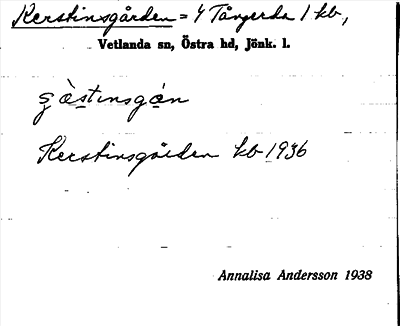 Kerstinsgården = 4 Tångerda 1 kb,
Vetlanda sn, Östra hd, Jönk. l.
Kerstinsgården kb 1936
Annalisa Andersson 1938